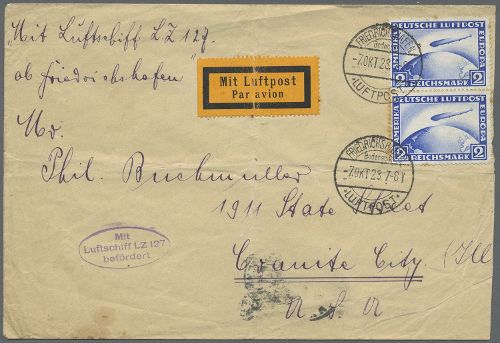 "Mit Luftschiff LZ 127
ab Friedrichshafen"
Mit Luftpost
Par avion
DEUTSCHE LUFTPOST
AMERIKA
EUROPA
2 REICHSMARK 2
DEUTSCHE LUFTPOST
AMERIKA
EUROPA
2 REICHSMARK 2
FRIEDRICHSHAFEN
-7.OKT 28
LUFTPOST
FRIEDRICHSHAFEN
-7.OKT 28 7-8V
LUFTPOST
Mr.
Phil. Buchmüller
1911 State
Granite City (Ill
U. S. A
Mit
Luftschiff LZ 127
befördert